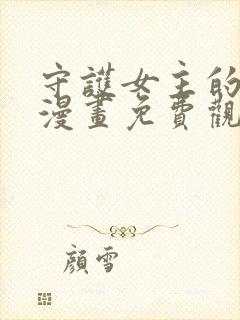 守護女主的
漫畫免費觀
顏雪